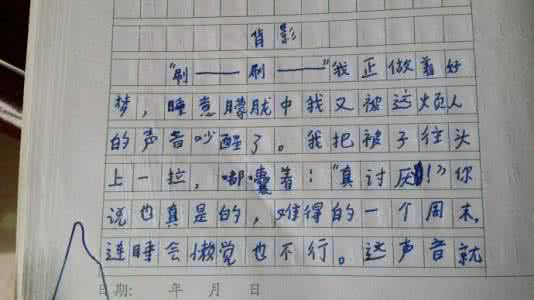 背影
“刷——刷——”我正做着好
梦，睡意朦胧中我又被这烦人
的声音吵醒了。我把被子往头
上一拉，嘟囔着：“真讨厌！”你
说也真是的，难得的一个周末，
连睡会懒觉也不行。这声音就
日期： 年 月 日